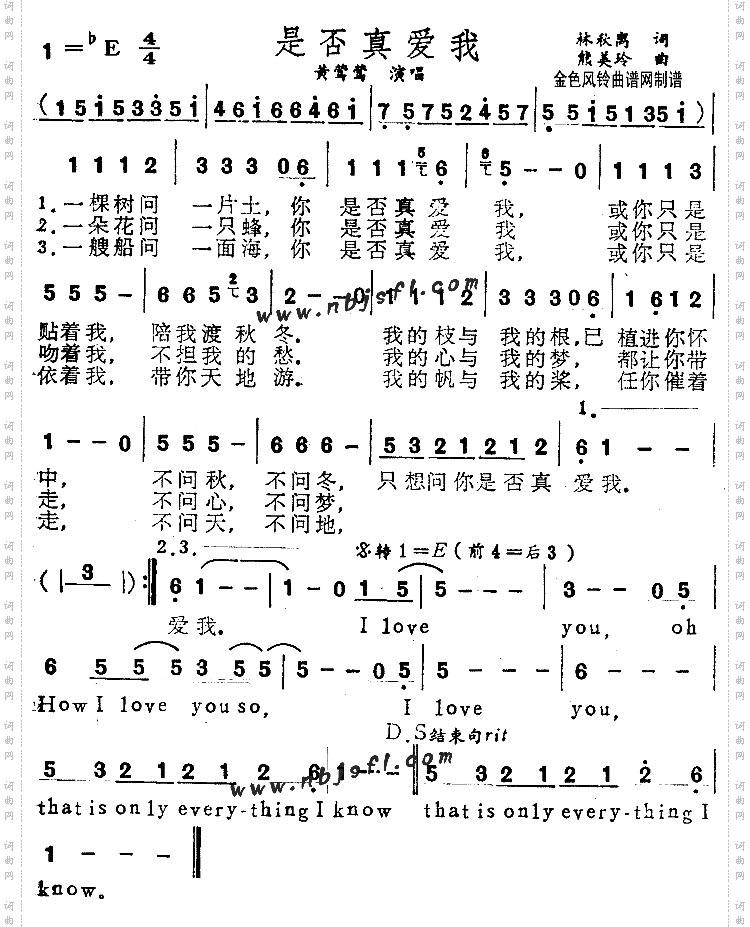 是否真爱我
1=♭E 4/4
林秋离 词
熊美玲 曲
黄莺莺 演唱
金色风铃曲谱网制谱
(15i5335i|46i6646i|75752457|55i5135i)|
1112|33306|1116|5--0|1113
1.一棵树问 一片土,你 是否真爱 我, 或你只是
2.一朵花问 一只蜂,你 是否真爱 我, 或你只是
3.一艘船问 一面海,你 是否真爱 我, 或你只是
555-|6653|2--0|1112|33306|1612
www.nbjsfl.com
贴着我, 陪我渡秋冬. 我的枝与 我的根,已 植进你怀
吻着我, 不担我的愁. 我的心与 我的梦, 都让你带
依着我, 带你天地游. 我的帆与 我的桨, 任你催着
1.
1--0|555-|666-|53212112|61--
中, 不问秋, 不问冬, 只想问你是否真 爱我.
走, 不问心, 不问梦,
走, 不问天, 不问地,
2.3. 转1=E(前4=后3)
(|-3-|):‖61--|1-015|5---|3--05
爱我. I love you, oh
6 5 5 53 55|5--05|5---|6---|
How I love you so, I love you,
D.S结束句rit
5 32121 2 6|1---‖5 32121 2 6
www.nbjsfl.com
that is only every-thing I know that is only every-thing I
1---‖
know.
词曲网